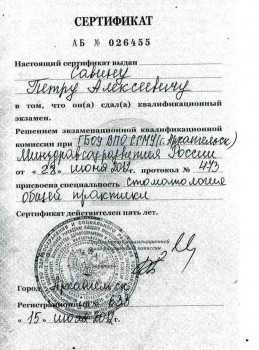 СЕРТИФИКАТ
АБ № 026455
Настоящий сертификат выдан
Савину
Петру Алексеевичу
в том, что он(а) сдал(а) квалификационный
экзамен.
Решением экзаменационной квалификационной
комиссии при ГБОУ ВПО СГМУ (г. Архангельск)
Минздравсоцразвития России
от « 22 » июня 2012 г. протокол № 473
присвоена специальность стоматология
общей практики
Сертификат действителен пять лет.
экзаменационной
комиссии
Город Архангельск
Регистрационный № 633
« 15 » июля 2012 г.